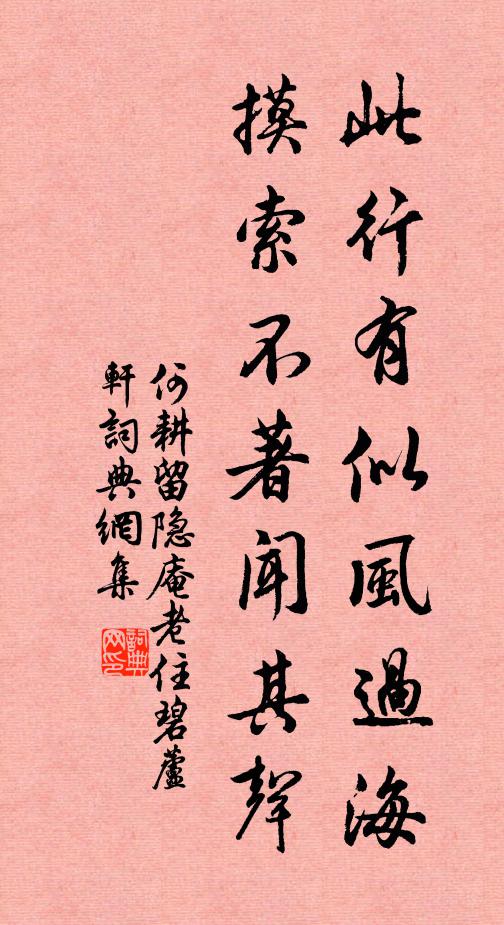 此行有似風過海
摸索不著聞其聲
何耕留隐庵老住碧蘆
軒詞典網集
詞典网印